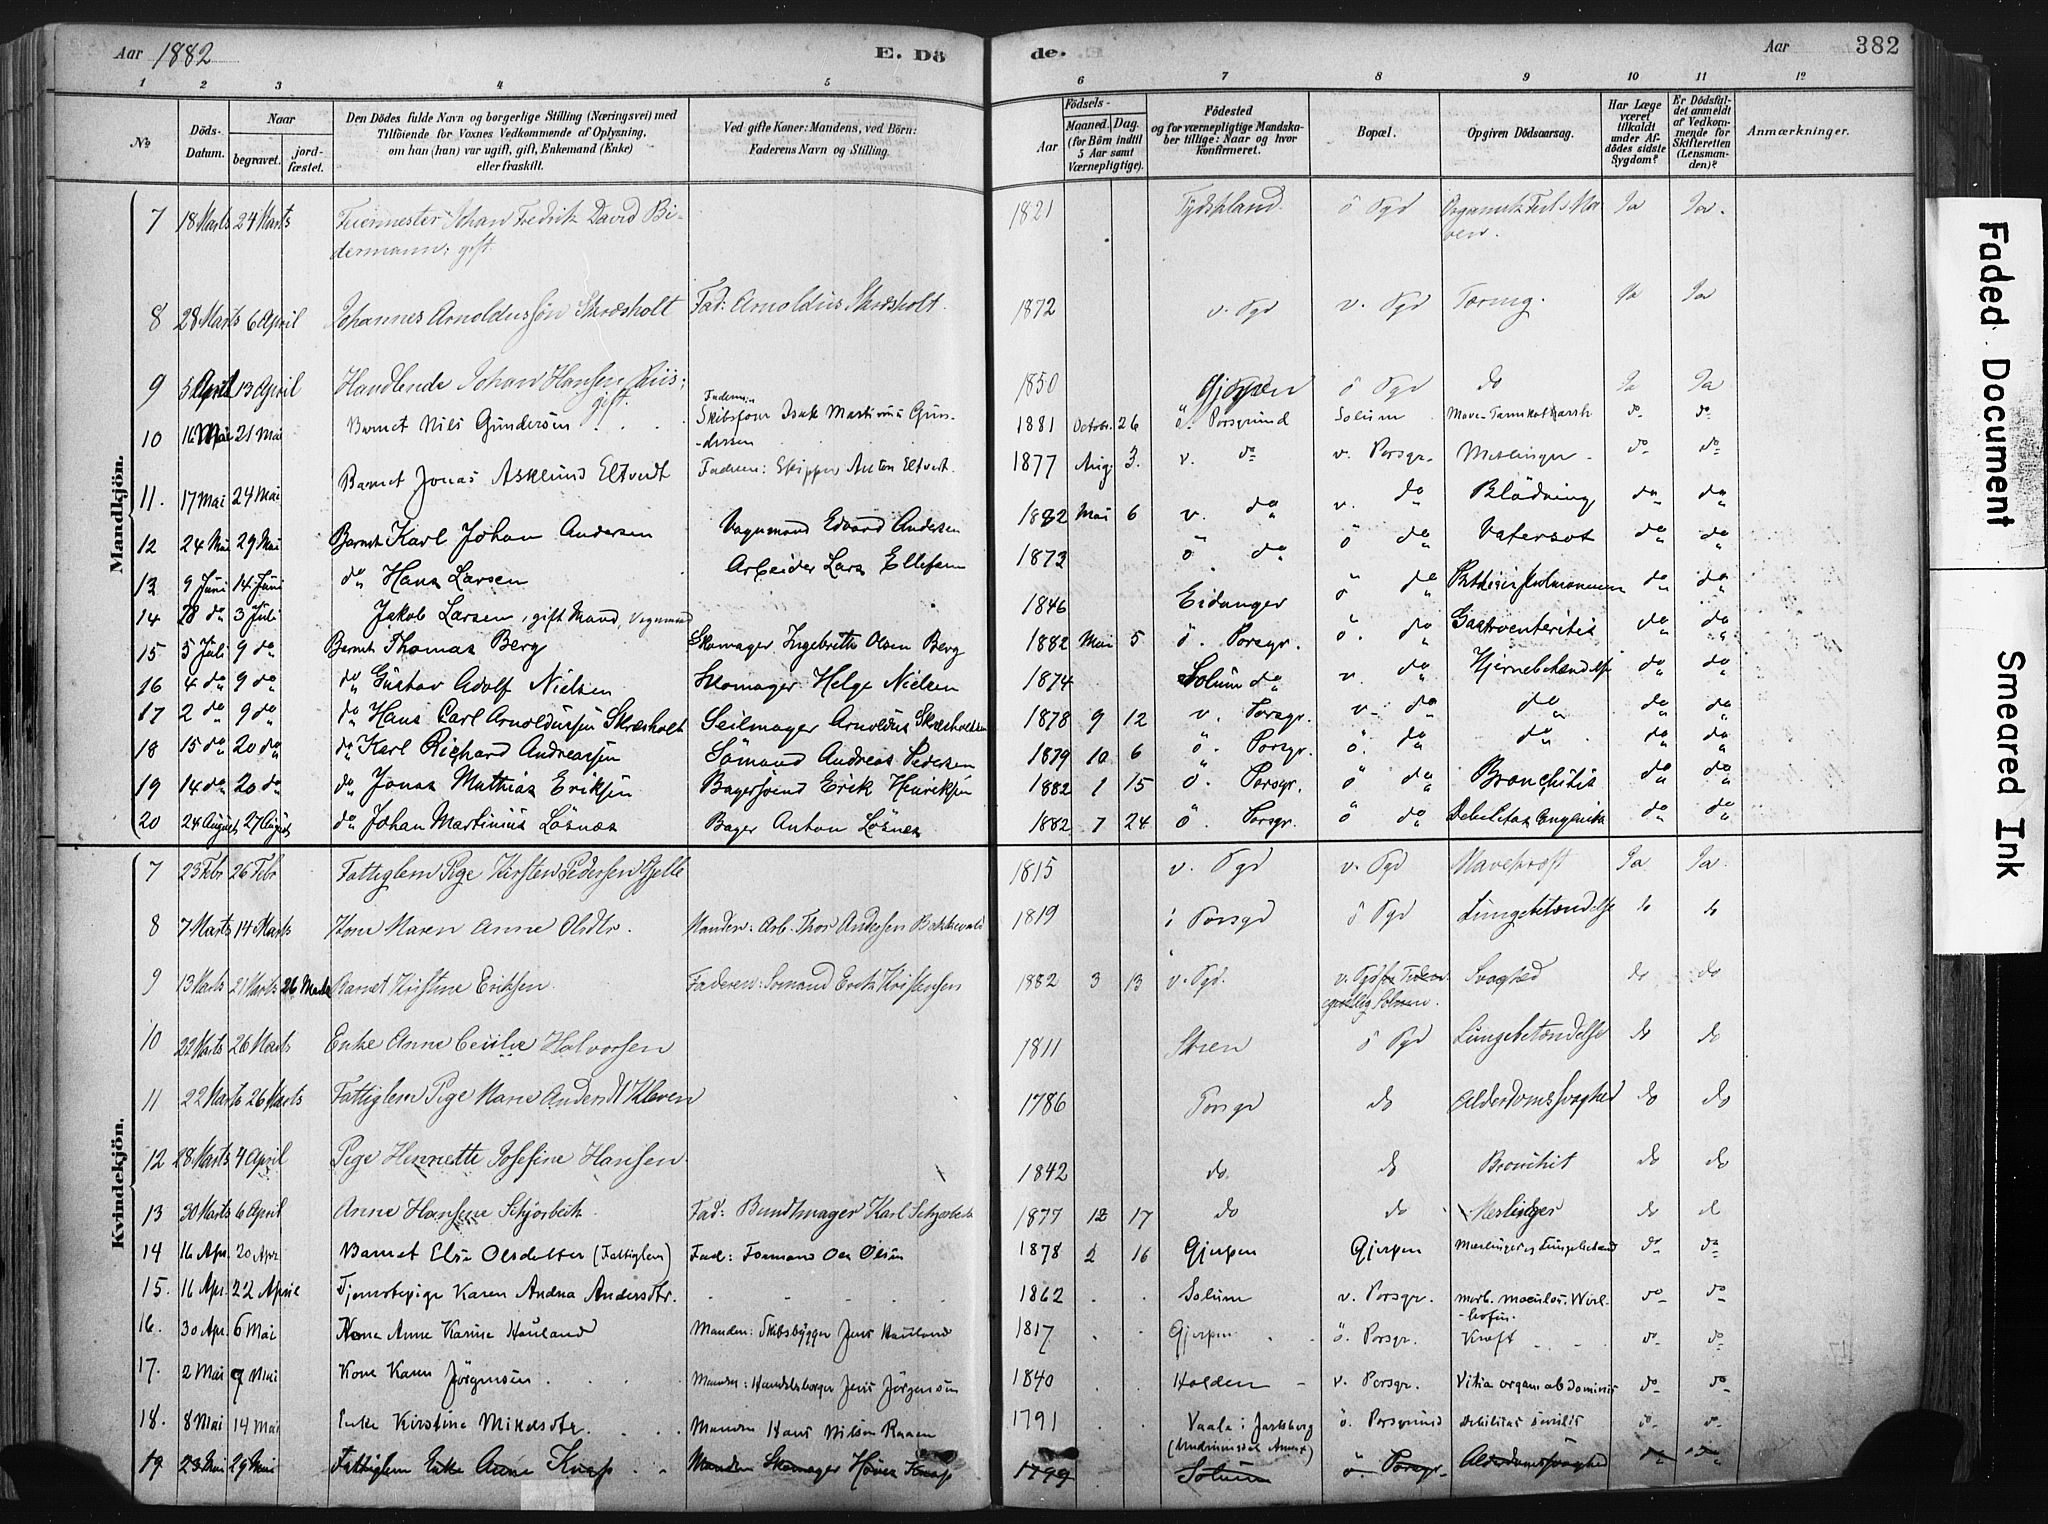 Aar 1882
E. Dö
de.
Aar
382
1 2 3 4 5 6 7 8 9 10 11 12
No
Döds-Datum.
Naar
begravet.
jordfæstet.
Den Dödes fulde Navn og borgerlige Stilling (Næringsvei) med
Tilföiende for Voxnes Vedkommende af Oplysning,
om han (hun) var ugift, gift, Enkemand (Enke)
eller fraskilt.
Ved gifte Koner: Mandens, ved Börn:
Faderens Navn og Stilling.
Födsels-
Aar
Maaned. Dag.
(for Börn indtil
5 Aar samt
Værnepligtige).
Födested
og for værnepligtige Mandska-
ber tillige: Naar og hvor
konfirmeret.
Bopæl.
Opgiven Dödsaarsag.
Har Læge
været
tilkaldt
under Af-
dödes sidste
Sygdom?
Er Dödsfal-
det anmeldt
af Vedkom-
mende for
Skifteretten
(Lensman-
den)?
Anmærkninger.
Mandkjön.
7 18 Marts 24 Marts Feiermester Johan Fredrik David Bi- 1821 Tydskland ö Pgd Organisk Feil i Ma- Ja Ja
dermann, gift. ven.
8 28 Marts 6 April Johannes Arnoldussøn Skræsholt Fad: Arnoldus Skræsholt. 1872 v. Pgd v. Pgd Tæring. Ja Ja
9 5 April 13 April Handlende Johan Hansen Riis; 1850 Gjerpen ö Pgd do Ja Ja
gift.
10 16 Mai 21 Mai Barnet Nils Gundersen Faderen Skibsfører Isak Martinus Gun- 1881 Octobr. 26 ö. Porsgrund Solum Mave-Tarmkatharrh do do
dersen
11. 17 Mai 24 Mai Barnet Jonas Asklund Eltvedt Faderen: Skipper Anton Eltvedt. 1877 Aug. 3. v. do v. Porsgr. Meslinger do do
12 24 Mai 29 Mai Barnet Karl Johan Andersen Vognmand Edvard Andersen 1882 Mai 6 v. do v. do Blödning do do
13 9 Juni 14 Juni do Hans Larsen Arbeider Lars Ellefsen 1873 ö do ö do Vatersot do do
14 28 do 3 Juli Jakob Larsen, gift Mand, Vognmand 1846 Eidanger ö do Phthisis pulmonum do do
15 5 Juli 9 do Barnet Thomas Berg Skomager Ingebreth Olsen Berg 1882 Mai 5 ö. Porsgr. ö. do Gastroenteritis do do
16 4 do 9 do do Gustav Adolf Nielsen Skomager Helge Nielsen 1874 Solum do v. do Hjernebetændelse do do
17 2 do 9 do do Hans Carl Arnoldussen Skræsholt Seilmager Arnoldus Skræsholdt 1878 9 12 v. Porsgr. v. do do do do
18 15 do 20 do do Karl Richard Andreassen Sömand Andreas Pedersen 1879 10 6 ö. Porsgr. ö. do do do do
19 14 do 20 do do Jonas Mathias Eriksen Bagersvend Erik Henriksen 1882 1 15 ö. Porsgr. ö do Bronchitis do do
20 24 August 27 August do Johan Martinius Løsnes Bager Anton Løsnes 1882 7 24 ö. Porsgr. ö do Debilitas do do
Kvindekjön.
7 23 Febr 26 Febr Fattiglem Pige Kirsten Pedersen 1815 v. Pgd v. Pgd Mavekræft Ja Ja
8 7 Marts 14 Marts Kone Maren Anne Olsdtr. Manden: Arb. Thor Andersen 1819 ö Porsgd ö Pgd Lungebetændelse do do
9 13 Marts 21 Marts 26 Marts Barnet Kristine Eriksen Faderen: Sömand Erik Kristensen 1882 3 13 v. Pgd. v. Pgd Svaghed do do
10 22 Marts 26 Marts Enke Anne Cecilie Halvorsen 1811 Skien ö Pgd Lungebetændelse do do
11 22 Marts 26 Marts Fattiglem Pige Maren Andersd Kleven 1786 Porsgr do Alderdomssvaghed do do
12 28 Marts 4 April Pige Henriette Josefine Hansen 1842 do do Bronchit do do
13 30 Marts 6 April Anne Hansine Schjorbeck Fad: Bundtmager Karl Schjorbeck 1877 12 17 do do Meslinger do do
14 16 Apr. 20 Apr Barnet Else Olesdatter (Fattiglem) Fad: Formand Ole Olsen 1878 2 16 Gjerpen Gjerpen Meslinger og Lungebetænd do do
15. 16 Apr. 22 Aprie Tjenestepige Karen Andrea Andersdtr. 1862 Solum v. Porsgr. morb. maculos. Werl- do do
hofii.
16. 30 Apr. 6 Mai Kone Anne Karine Hauland Manden: Skibsbygger Jens Hauland 1817 Gjerpen ö. Porsgr. Kræft do do
17. 2 Mai 9 Mai Kone Karen Jörgensen Manden: Handelsborger Jens Jörgensen 1840 Holden v. Porsgr. Vitia organ abdominis do do
18. 8 Mai 14 Mai Enke Kirstine Mikelsdtr. Manden Hans Nilsen Raaen 1791 Vaale i Jarlsberg ö. Porsgrund Debilitas senilis do do
(Undrumsdal Annex)
19 23 Mai 29 Mai Fattiglem Enke Anne Knap Manden Skomager Knap 1799 Solum ö Porsgr. Alderdomssvaghed do do
Faded Document
Smeared Ink